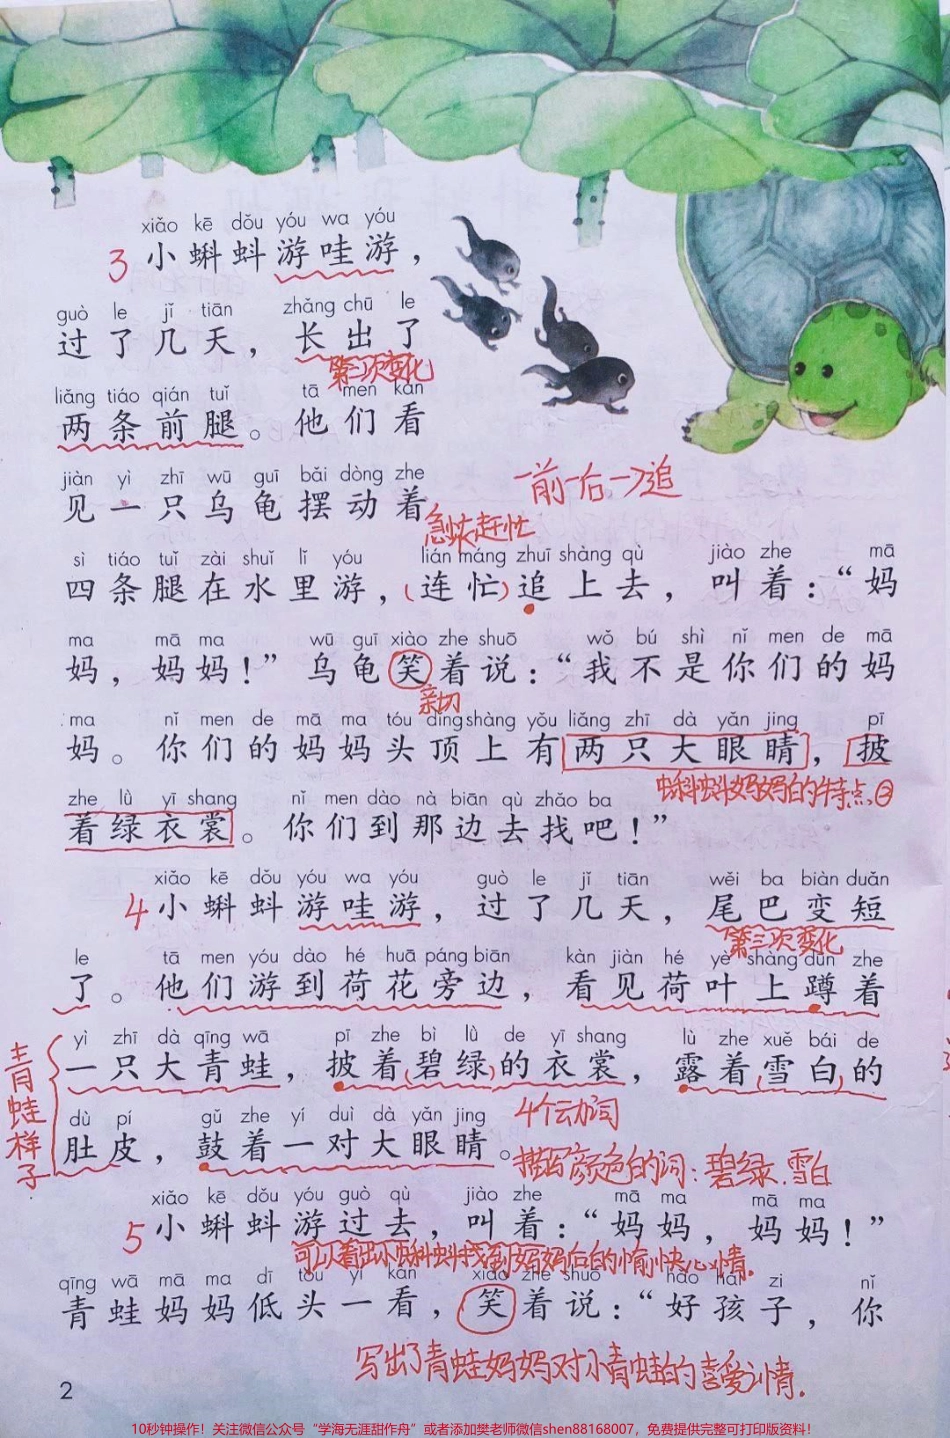 xiǎo kē dǒu yóu wa yóu
3 小蝌蚪游哇游，
guò le jǐ tiān zhǎng chū le
过了几天，长出了
第二次变化
liǎng tiáo qián tuǐ tā men kàn
两条前腿。他们看
jiàn yì zhī wū guī bǎi dòng zhe
见一只乌龟摆动着
一前一后一追
急忙赶忙
sì tiáo tuǐ zài shuǐ lǐ yóu lián máng zhuī shàng qù jiào zhe mā
四条腿在水里游，（连忙）追上去，叫着：“妈
ma mā ma wū guī xiào zhe shuō wǒ bú shì nǐ men de mā
妈，妈妈！” 乌龟笑着说：“我不是你们的妈
亲切
ma nǐ men de mā ma tóu dǐng shàng yǒu liǎng zhī dà yǎn jing pī
妈。你们的妈妈头顶上有两只大眼睛，披
蝌蚪妈妈的特点②
zhe lǜ yī shang nǐ men dào nà biān qù zhǎo ba
着绿衣裳。你们到那边去找吧！”
xiǎo kē dǒu yóu wa yóu guò le jǐ tiān wěi ba biàn duǎn
4 小蝌蚪游哇游，过了几天，尾巴变短
第三次变化
le tā men yóu dào hé huā páng biān kàn jiàn hé yè shàng dūn zhe
了。他们游到荷花旁边，看见荷叶上蹲着
yì zhī dà qīng wā pī zhe bì lǜ de yī shang lù zhe xuě bái de
一只大青蛙，披着（碧绿）的衣裳，露着（雪白）的
青蛙样子
4个动词
dù pí gǔ zhe yí duì dà yǎn jing
肚皮，鼓着一对大眼睛。
描写颜色的词：碧绿、雪白
xiǎo kē dǒu yóu guò qù jiào zhe mā ma mā ma
5 小蝌蚪游过去，叫着：“妈妈，妈妈！”
可以看出小蝌蚪找到妈妈后的愉快心情。
qīng wā mā ma dī tóu yí kàn xiào zhe shuō hǎo hái zi nǐ
青蛙妈妈低头一看，笑着说：“好孩子，你
写出了青蛙妈妈对小青蛙的喜爱之情。
2
10秒钟操作！关注微信公众号“学海无涯甜作舟”或者添加樊老师微信shen88168007，免费提供完整可打印版资料！